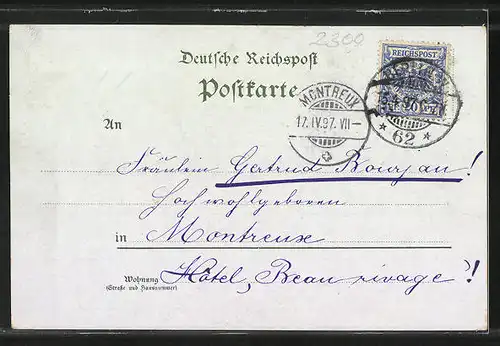 2300
Deutsche Reichspost
Postkarte
REICHSPOST
MONTREUX
17.IV.97.VII–
62
An
Fräulein Gertrud Bourjau!
Hochwohlgeboren
in Montreux
Wohnung Hôtel, Beau rivage!
(Straße und Hausnummer)